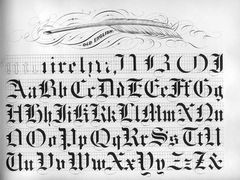 OLD ENGLISH
AaBbCcDdEeFfGg
HhIiJjKkLlMmNn
OoPpQqRrSsTtU
uVvWwXxYyZz&